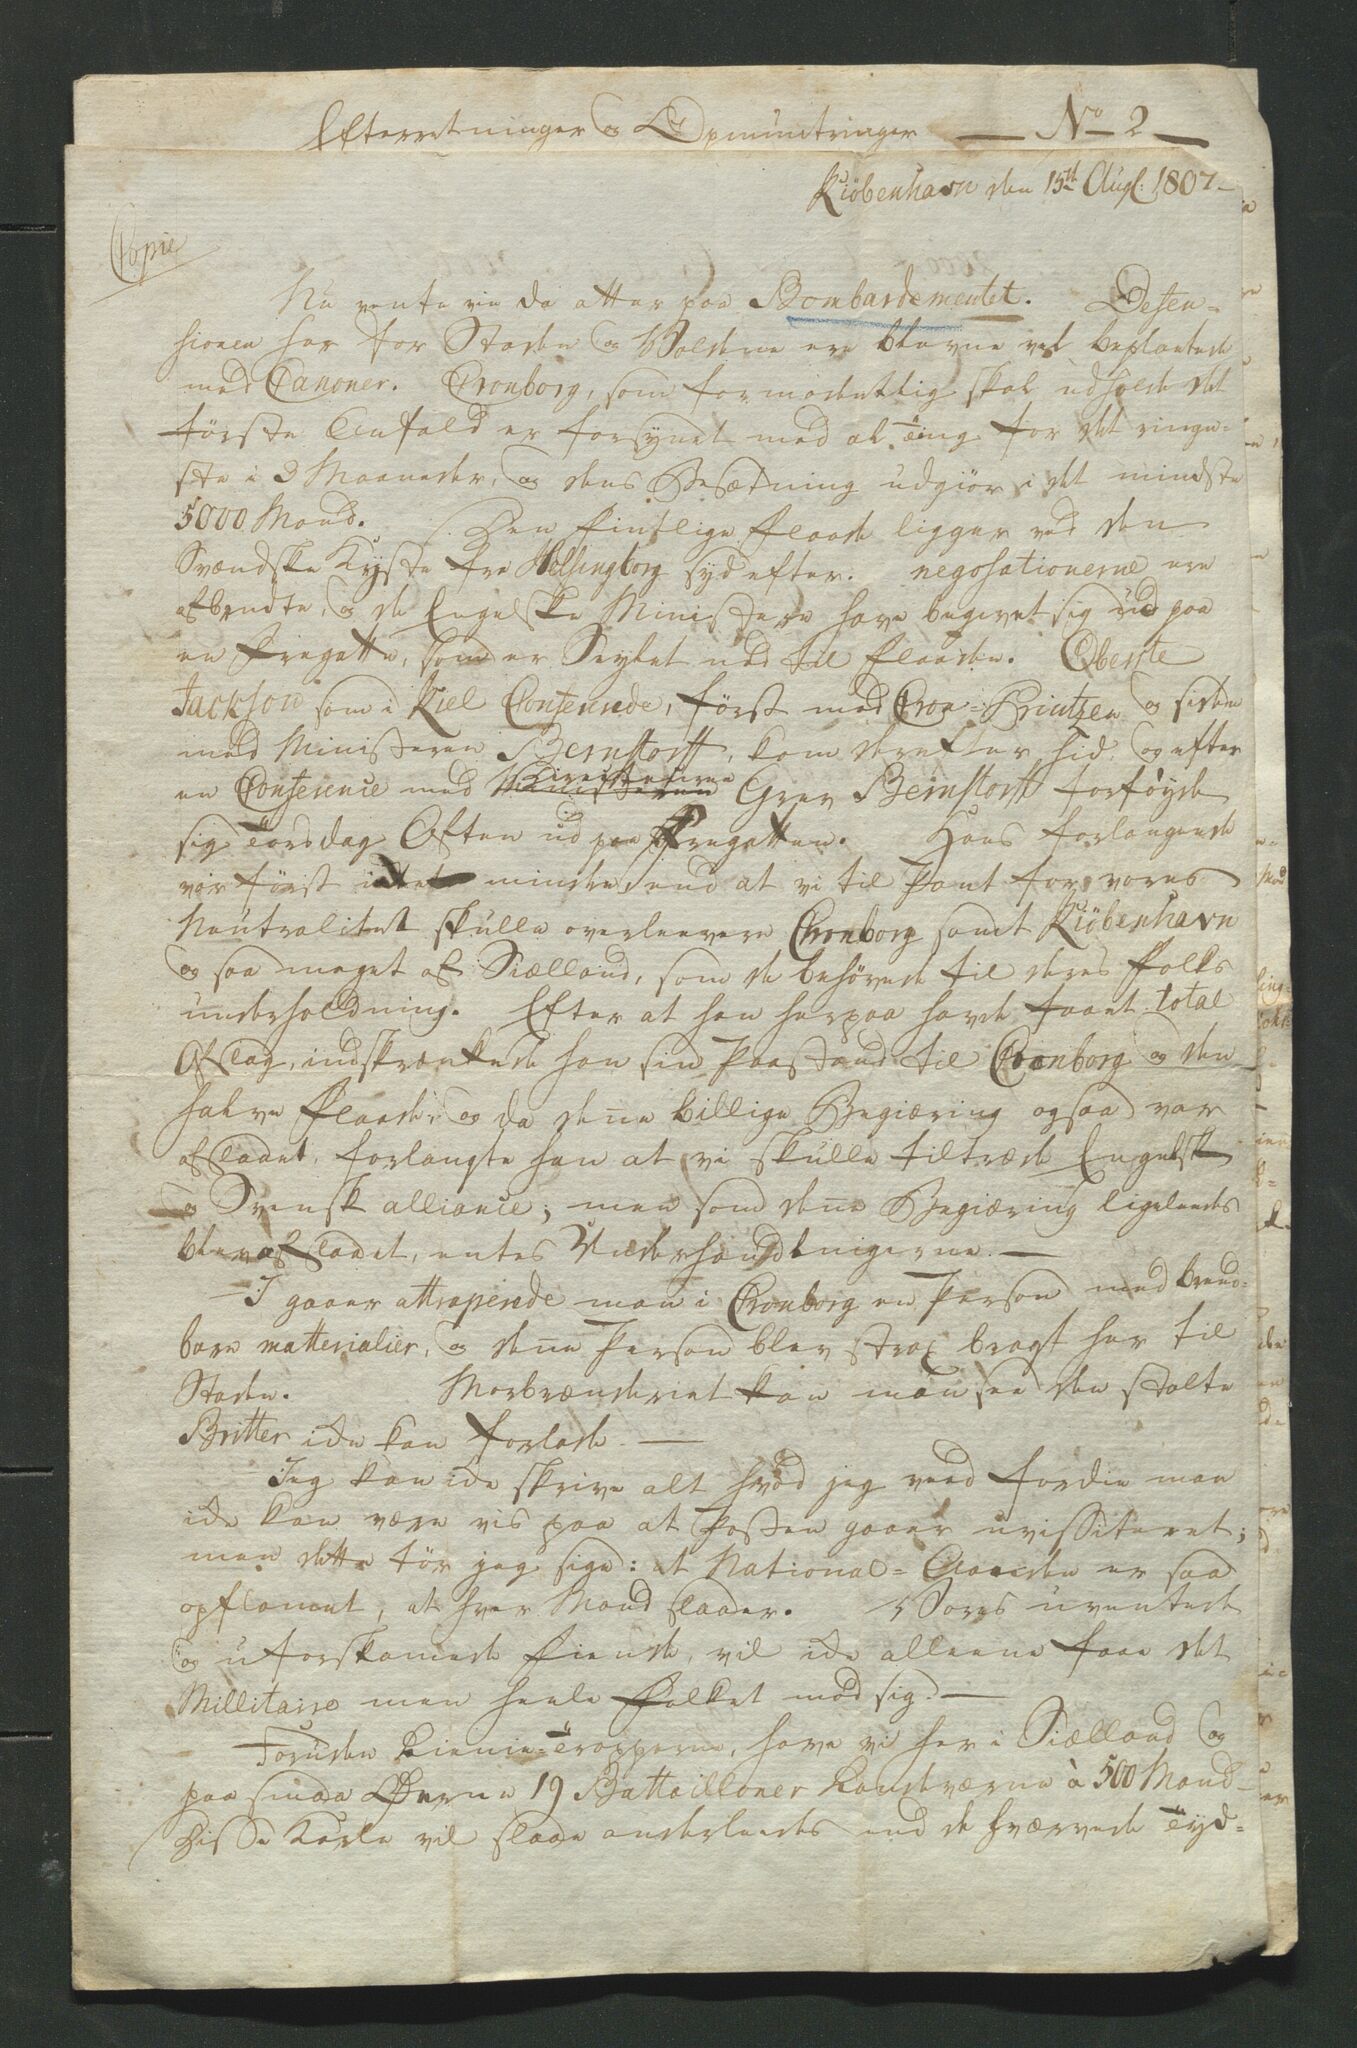 Efterretninger og Opmuntringer — No 2 —
Kiöbenhavn den 15de Augl: 1807 –
Copie
Nu vente vie da atter paa Bombardementet. Defen-
sionen her for Staden og Voldene ere blevne vel beplantede
med Canoner. Cronborg, som formodentlig skal udholde det
förste Anfald er forsynet med al ting for det ringe-
ste i 3 Maaneder, og dens Besætning udgiör i det mindste
5000 Mand. Den fintlige Flaade ligger ved den
Svendske Kyste fra Helsingborg syd efter. negosationerne ere
afbrudte, og de Engelske Ministere have begivet sig ud paa
en Fregatte, som er Seylet ned til Flaaden. Oberste
Jackson som i Kiel Conferrede, först med Cron-Printzen og siden
med Ministeren Bernstorff, kom derefter hid og efter
en Conference med Ministeren Grev Bernstorff forföyede
sig Torsdag Aften ud paa Fregatten. Hans forlangende
var först intet mindre end at vi til Pant for vores
Neutralitet skulle overleevere Cronborg samt Kiöbenhavn
og saa meget af Siælland, som de behövede til deres Folks
underholdning. Efter at han herpaa havde faaet total
Afslag, indskrænkede han sin Paastand til Cronborg og den
halve Flaade, og da denne billige Begiæring ogsaa var
afslaaet, forlangte han at vi skulle tiltræde Engelsk
og Svensk alliance; men som denne Begiæring ligeleedes
blev afslaaet, entes Underhandlingerne. —
I gaaer attraperede man i Cronborg en Person med brend-
bare matterialier, og denne Person blev strax bragt her til
Staden. Morbrænderiet kan man see den stolte
Britter icke kan forlade. —
Jeg kan icke skrive alt hvad jeg veed fordie man
icke kan være vis paa at Posten gaaer uvissiteret;
men dette tör jeg sige: at National-Aanden er saa
opflamet, at hver Mand slaaer. Vores uventede
og uforskamede Fiende, vil icke alleene faae det
Millitaire men heele Folket mod sig. —
Foruden Linie-Tropperne, have vi her i Siælland og
paa smaa Öerne 19 Battailloner Landeværne à 500 Mand –
Disse Karle vil slaae anderleedes end de hværvede Tyd-